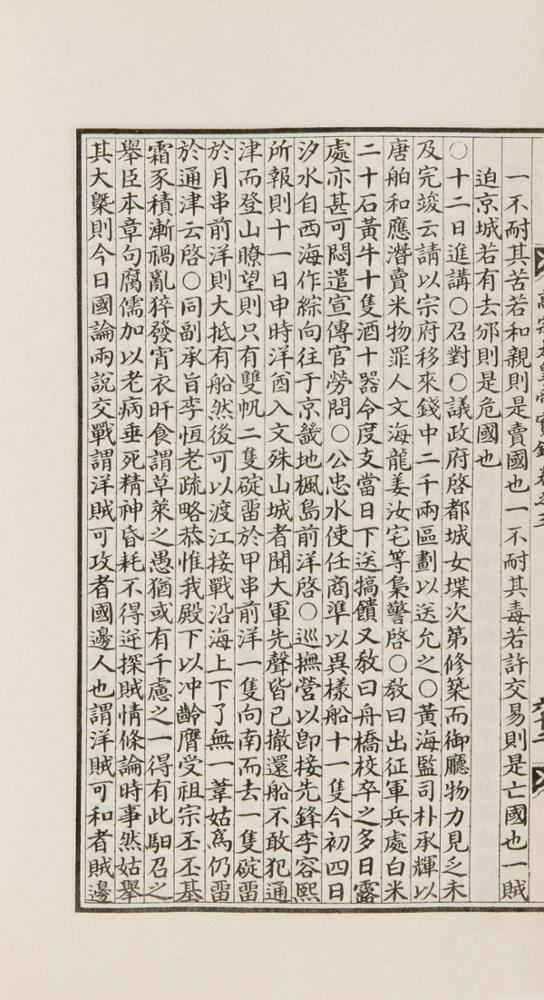 一不耐其苦若和親則是賣國也一不耐其毒若許交易則是亡國也一賊
迫京城若有去邠則是危國也
○十二日進講○召對○議政府啓都城女堞次第修築而御廳物力見乏未
及完竣云請以宗府移來錢中二千兩區劃以送允之○黃海監司朴承輝以
唐舶和應潛賣米物罪人文海龍姜汝宅等梟警啓○敎曰出征軍兵處白米
二十石黃牛十隻酒十器令度支當日下送犒饋又敎曰舟橋校卒之多日露
處亦甚可悶遣宣傳官勞問○公忠水使任商準以異樣船十一隻今初四日
汐水自西海作綜向往于京畿地楓島前洋啓○巡撫營以卽接先鋒李容熙
所報則十一日申時洋酋入文殊山城者聞大軍先聲皆已撤還船不敢犯通
津而登山瞭望則只有雙帆二隻碇留於甲串前洋一隻向南而去一隻碇留
於月串前洋則大抵有船然後可以渡江接戰沿海上下了無一葦姑爲仍留
於通津云啓○同副承旨李恒老疏略恭惟我殿下以冲齡膺受祖宗丕丕基
霜豕積漸禍亂猝發宵衣旰食謂草萊之愚猶或有千慮之一得有此馹召之
擧臣本章句腐儒加以老病垂死精神昏耗不得迓探賊情條論時事然姑擧
其大槩則今日國論兩說交戰謂洋賊可攻者國邊人也謂洋賊可和者賊邊